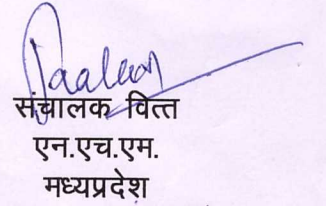 संचालक वित्त
एन.एच.एम.
मध्यप्रदेश